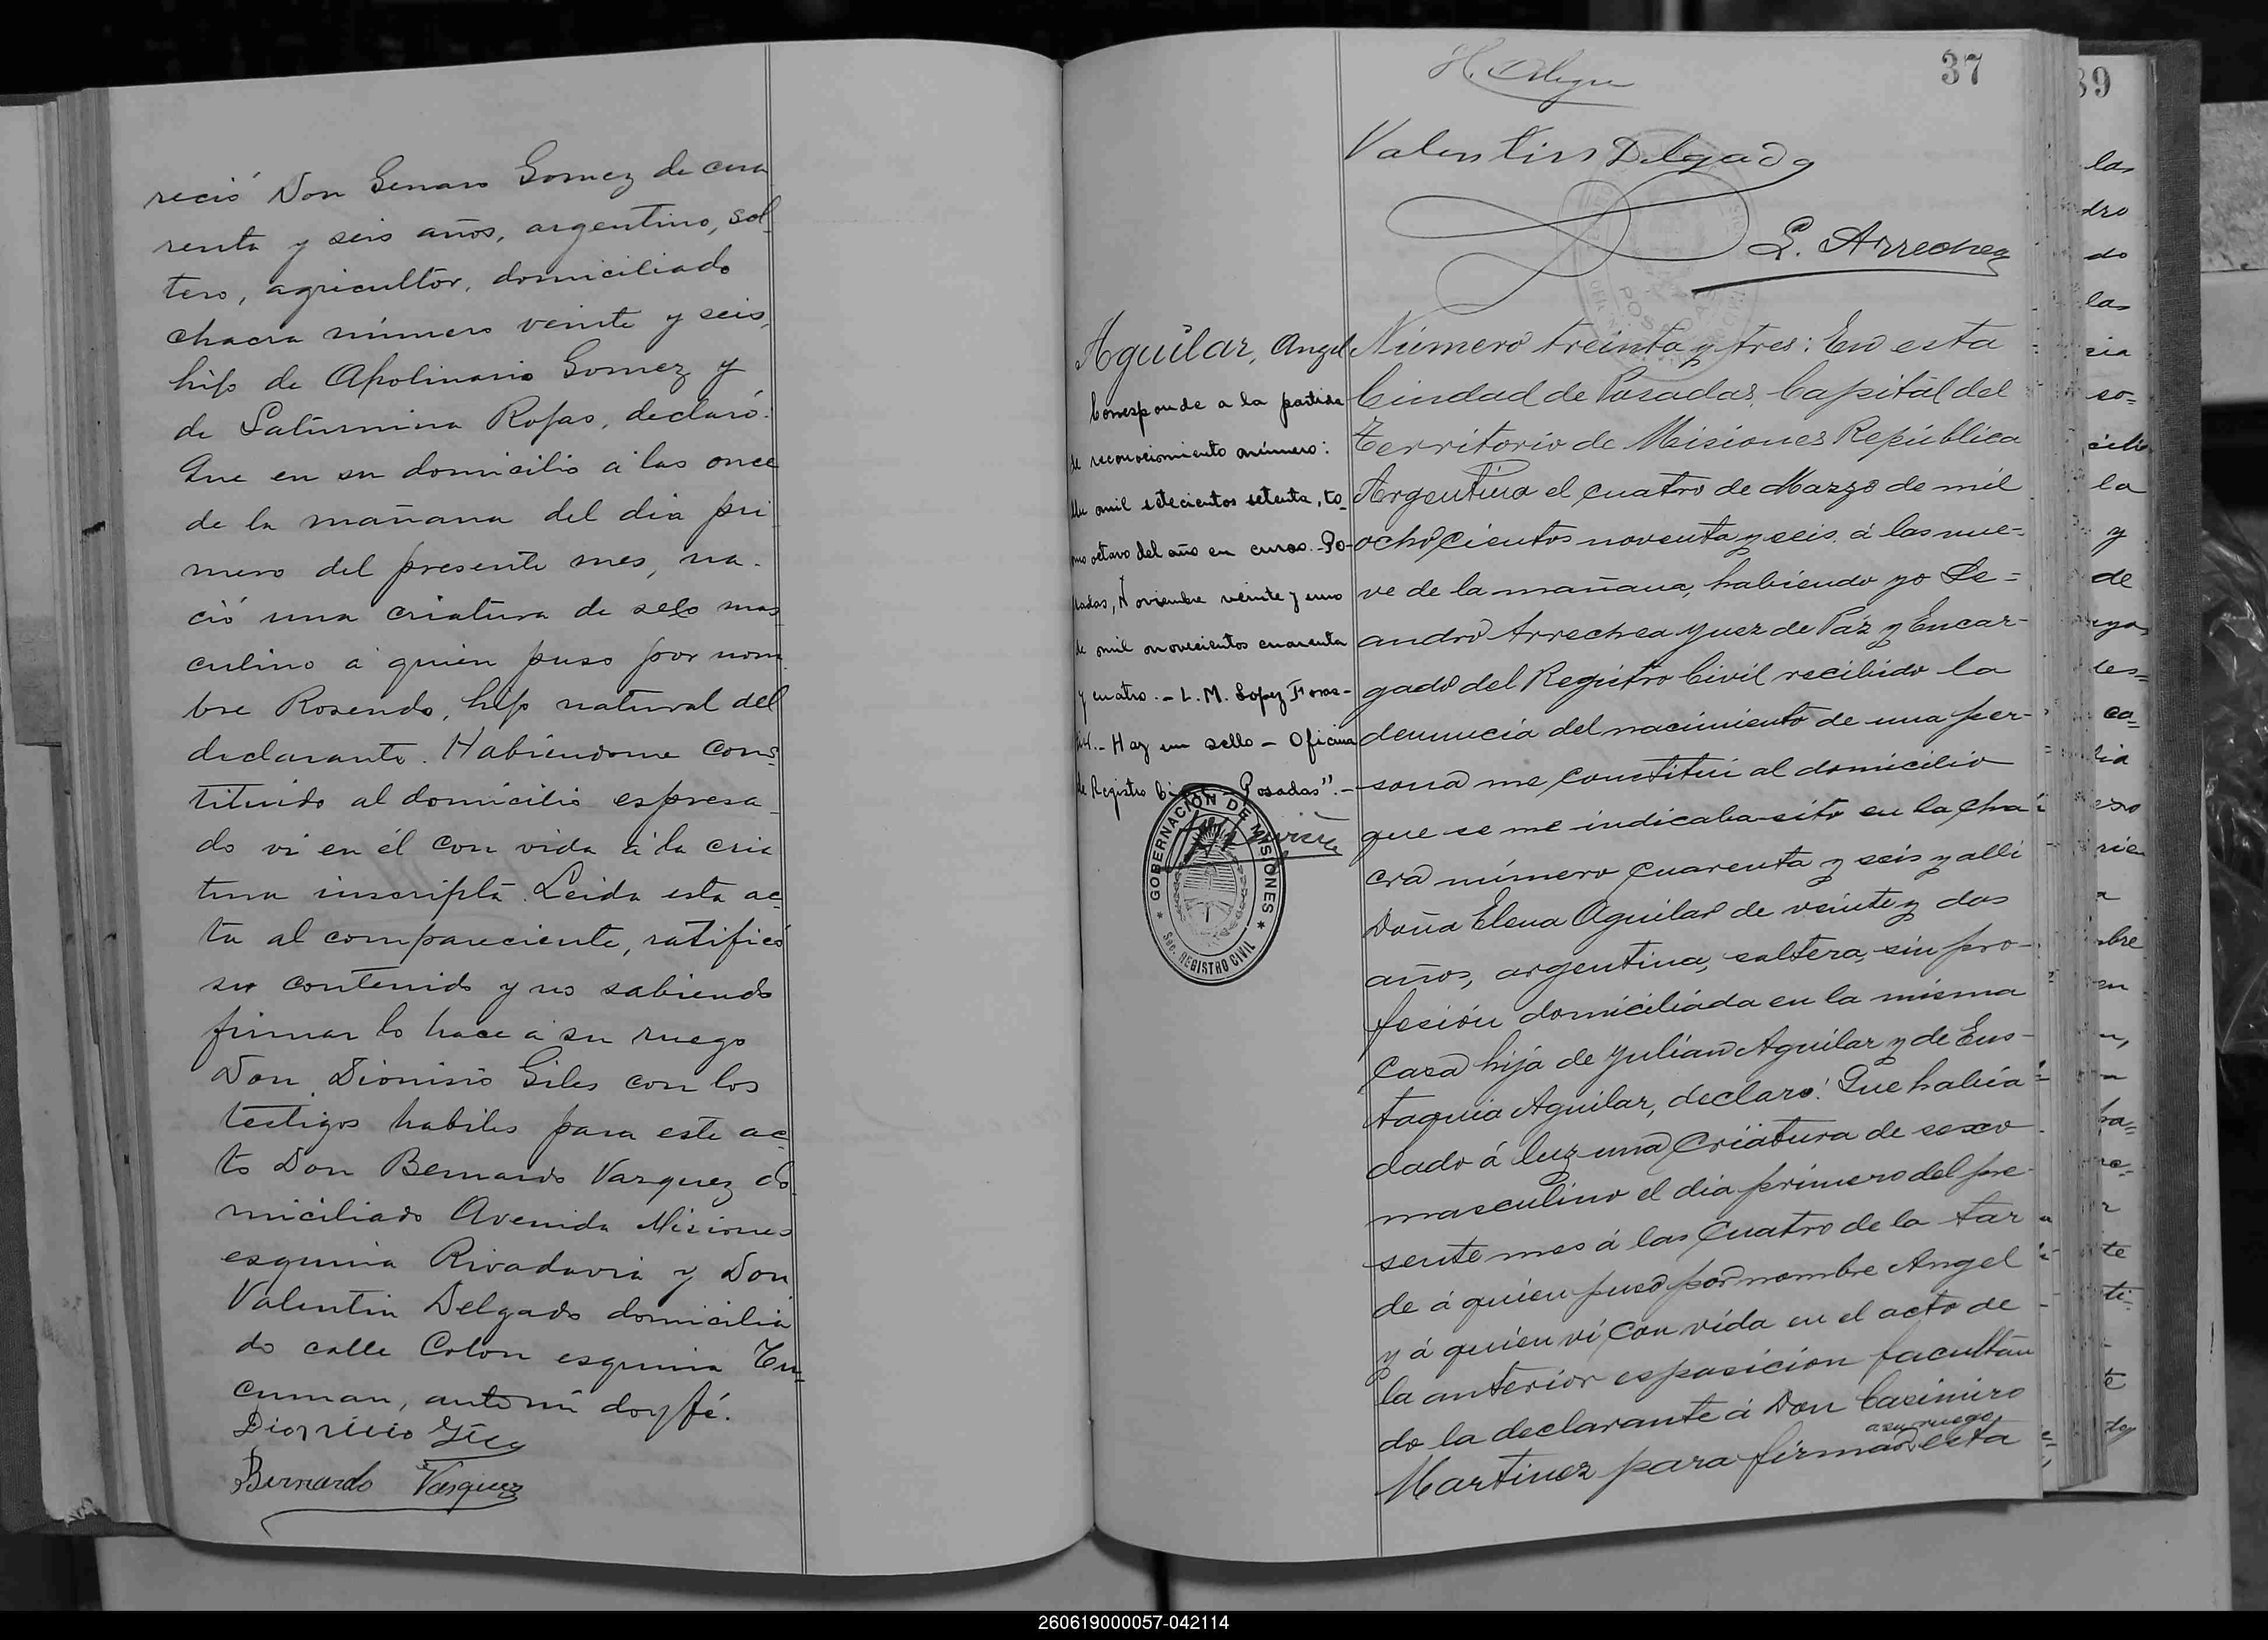 reció Don Genaro Gomez de cua
renta y seis años, argentino, sol
tero, agricultor, domiciliado
chacra número veinte y seis,
hijo de Apolinario Gomez y
de Saturnina Rojas, declaró:
Que en su domicilio á las once
de la mañana del dia pri
mero del presente mes, na-
ció una criatura de sexo mas
culino á quien puso por nom
bre Rosendo, hijo natural del
declarante. Habiendome cons
tituido al domicilio espresa
do vi en él con vida á la cria
tura inscripta. Leida esta ac
ta al compareciente, ratificó
su contenido y no sabiendo
firmar lo hace á su ruego
Don Dionisio Giles con los
testigos habiles para este ac
to Don Bernardo Vazquez do
miciliado Avenida Misiones
esquina Rivadavia y Don
Valentin Delgado domicilia
do calle Colon esquina Tu
cuman, ante mi doy fé.
Dionicio
Bernardo Vasquez
37
Valentin Delgado
L. Arrechea
POSADAS
Aguilar, Angel
Corresponde a la partida
de reconocimiento número:
mil setecientos setenta, to-
mo octavo del año en curso.-Po-
sadas, Noviembre veinte y uno
de mil novecientos cuarenta
y cuatro.- L. M. Lopez
Hay un sello - Oficina
de Registro Posadas".-
GOBERNACION DE MISIONES
Sec. REGISTRO CIVIL
Número treinta y tres: En esta
Ciudad de Posadas, Capital del
Territorio de Misiones República
Argentina el cuatro de Marzo de mil
ochocientos noventa y seis á las nue-
ve de la mañana, habiendo yo Le-
andro Arrechea Juez de Paz y Encar-
gado del Registro Civil recibido la
denuncia del nacimiento de una per-
sona me constitui al domicilio
que se me indicaba sito en la cha
cra número cuarenta y seis y alli
Doña Elena Aguilar de veinte y dos
años, argentina, soltera, sin pro-
fesión domiciliada en la misma
casa hija de Julian Aguilar y de Eus-
taquia Aguilar, declaro: Que habia
dado á luz una criatura de sexo
masculino el dia primero del pre
sente mes á las cuatro de la tar
de á quien puso por nombre Angel
y á quien vi con vida en el acto de
la anterior esposicion facultan
do la declarante á Don Casimiro
a su ruego
Martinez para firmar esta
39
las
dro
do
las
so-
la
y
de